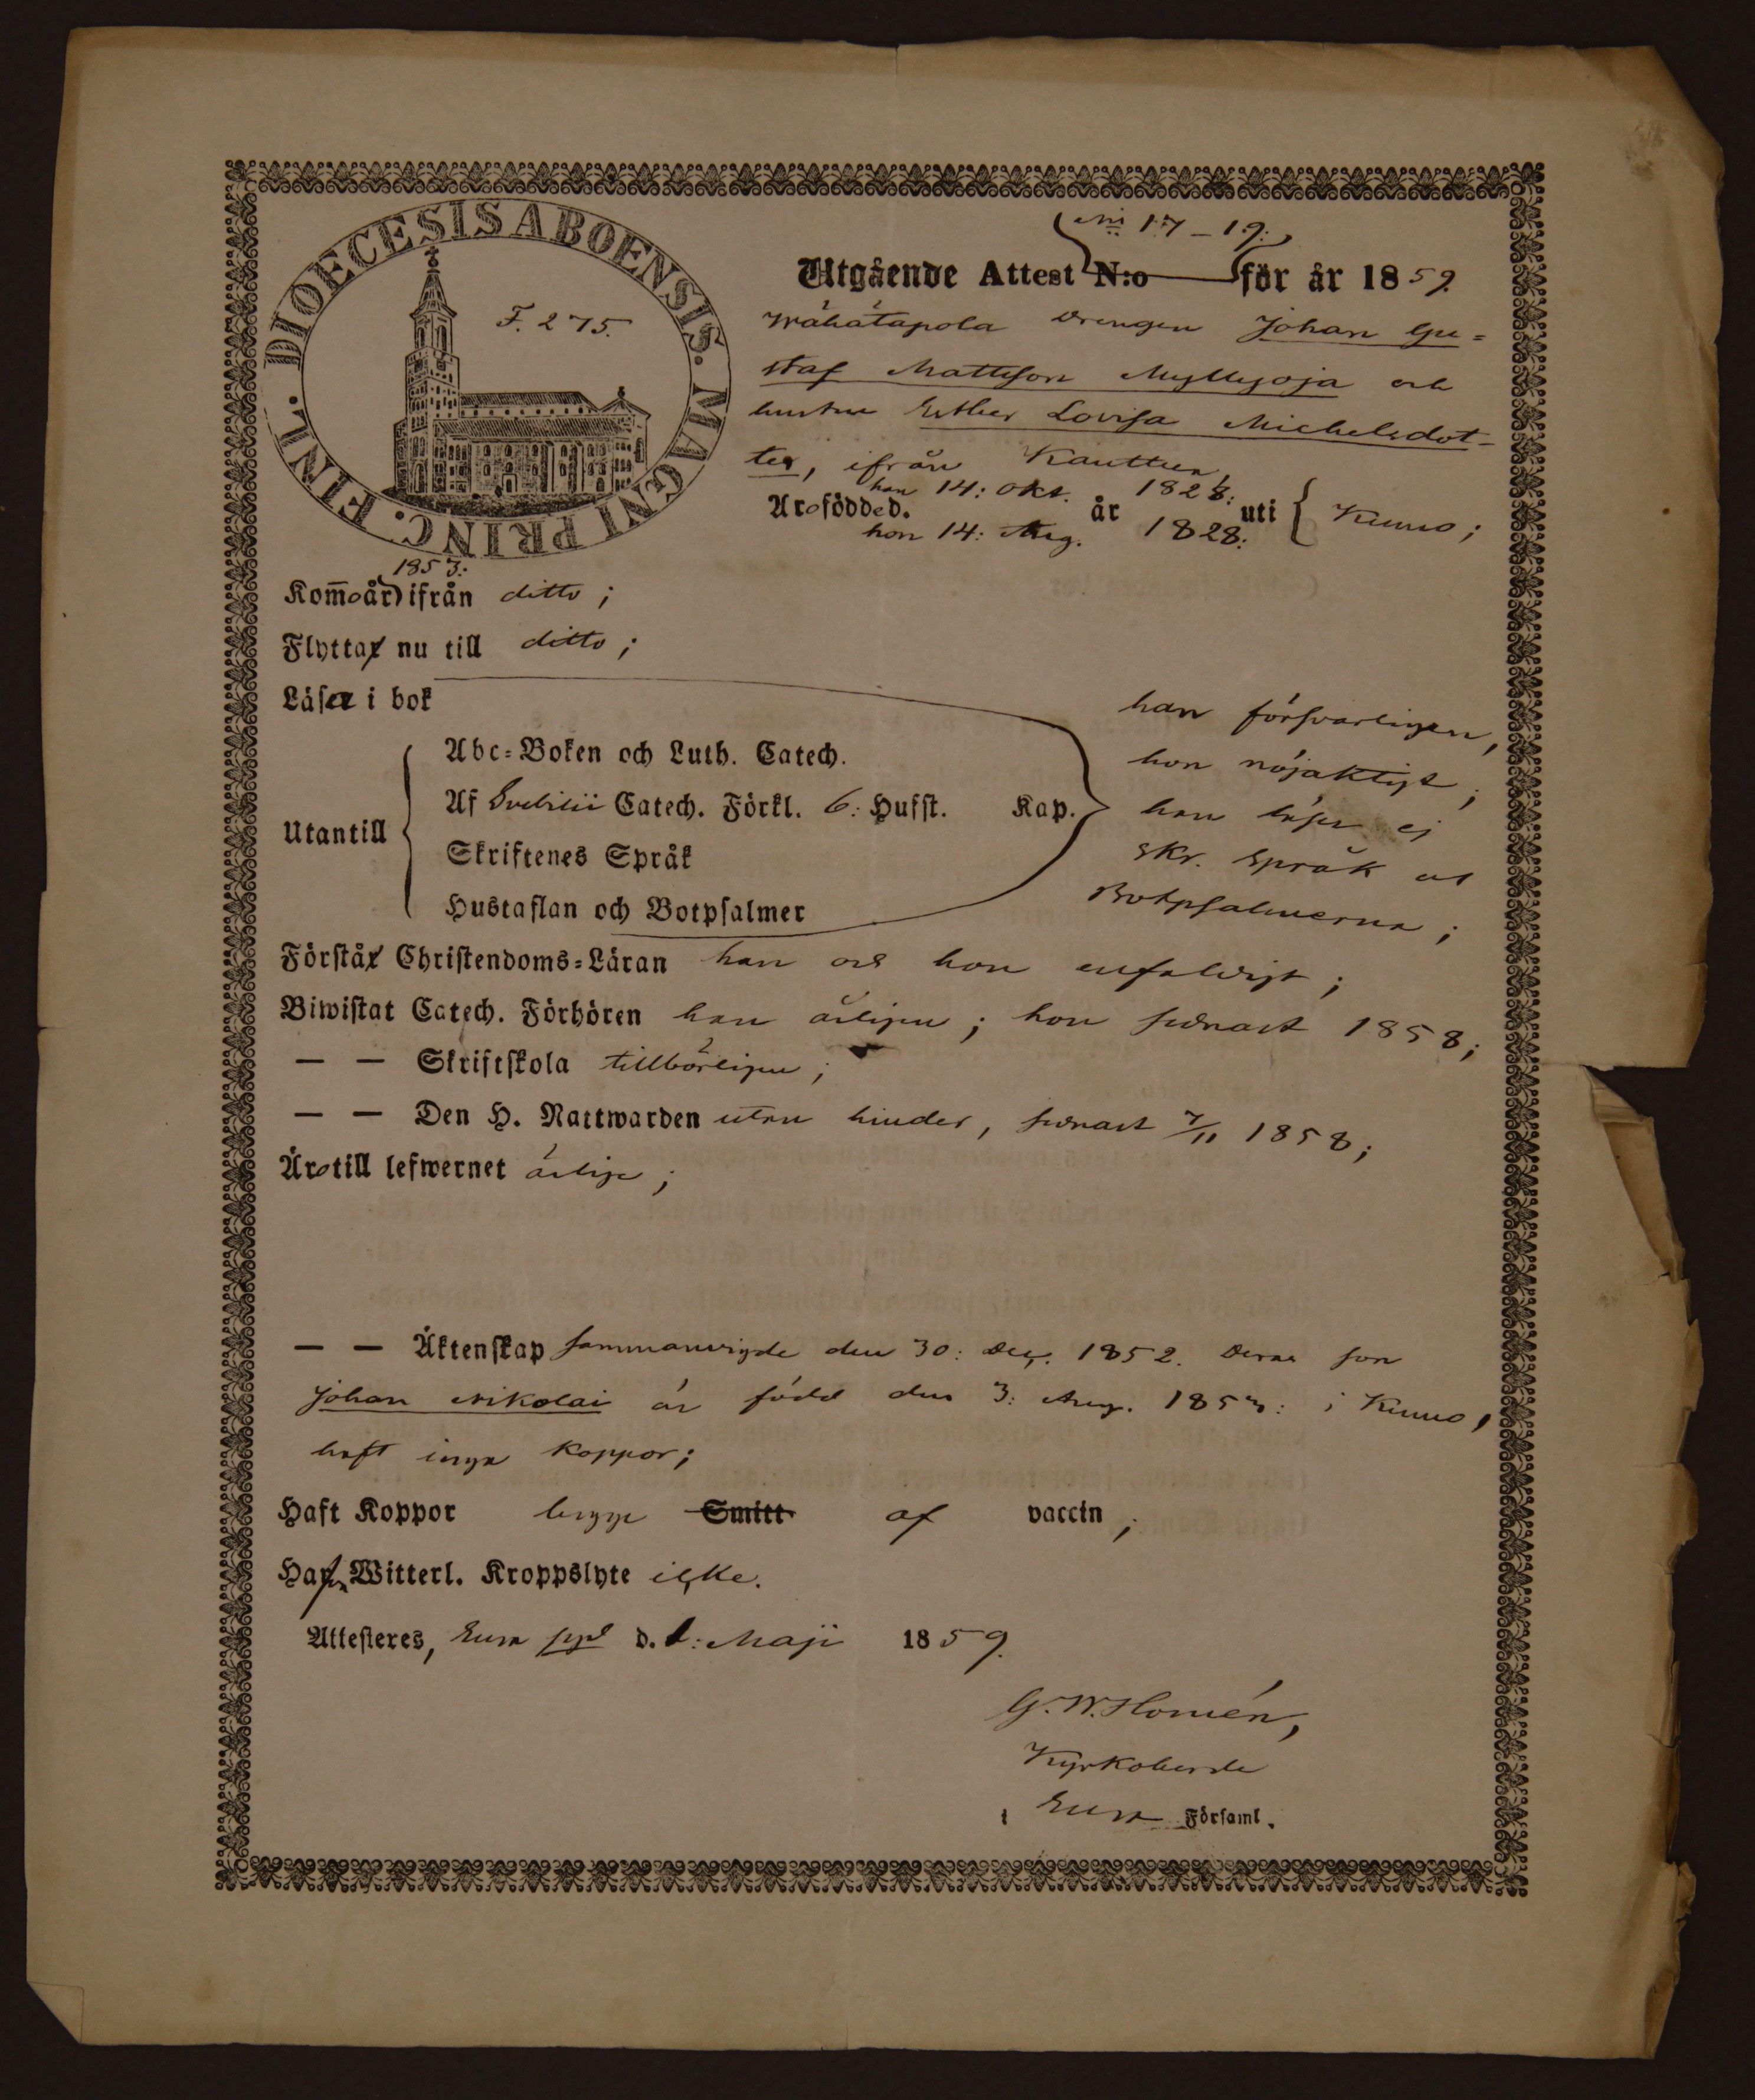 DIOECESIS ABOENSIS. MAGNI PRINC. FINL.
F. 275.
No 17–19:
Utgående Attest N:o för år 1859.
Wähätapola drengen Johan Gu=
staf Mattsson Myllyoja och
hustru Esther Lovisa Michelsdot-
ter, ifrån Kauttua,
han 14: Okt. 182
Äro födde d. år uti Kiumo;
hon 14: Aug. 1828:
1853:
Kom̄o år ifrån ditto;
Flytta nu till ditto;
Läsa i bok
han försvarligen,
Abc-Boken och Luth. Catech.
hon nöjaktigt;
Utantill
Af Svebilii Catech. Förkl. 6: Hufst. Kap.
han läser ej
Skriftenes Språk
Skr. Språk och
Hustaflan och Botpsalmer
Botpsalmerna;
Förstå Christendoms-Läran han och hon enfaldigt;
Biwistat Catech. Förhören han årligen; hon sednast 1858;
— — Skriftskola tillbörligen;
— — Den H. Nattwarden utan hinder, sednast 7/11 1858;
Äro till lefwernet ärlige;
— — Äktenskap sammanvigde den 30: Dec. 1852. Deras son
Johan Nikolai är född den 3: Aug. 1853: i Kiumo,
haft inga koppor;
Haft Koppor begge Smitt af vaccin;
Hafva Witterl. Kroppslyte icke.
Attesteres, Eura d. 1: Maji 1859.
G. W. Homén,
Kyrkoherde
i Eura Församl.